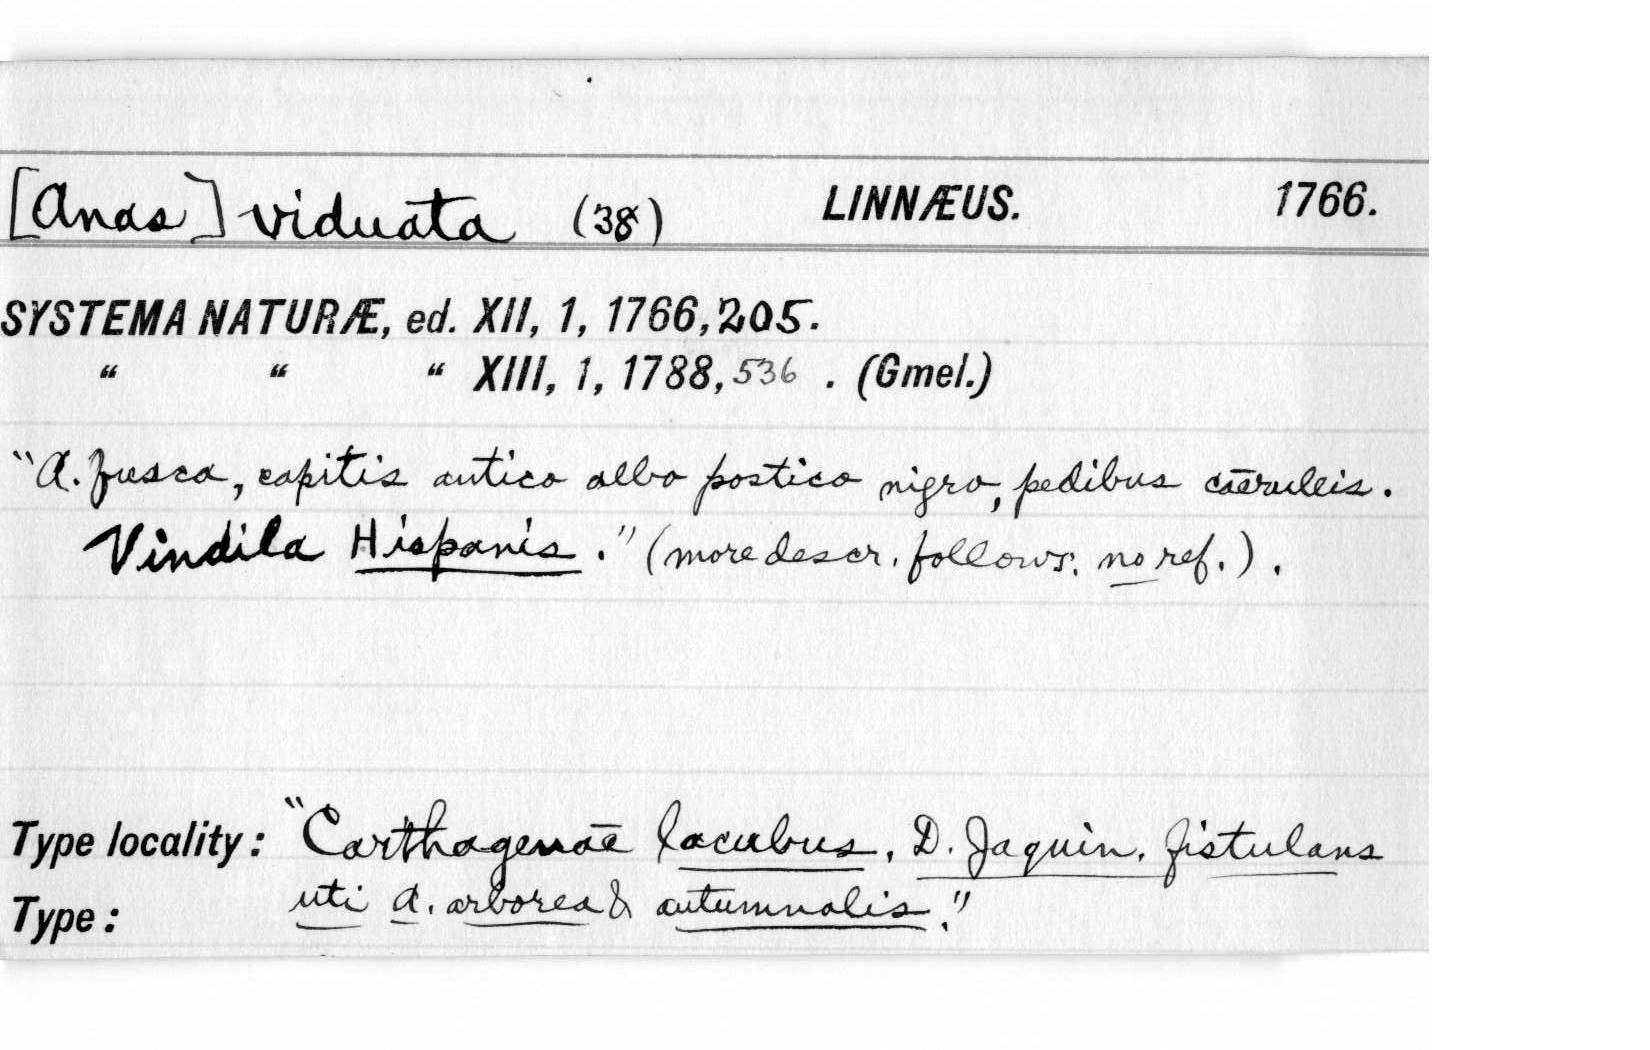 [Anas] viduata (38) LINNÆUS. 1766.
SYSTEMA NATURÆ, ed. XII, 1, 1766, 205.
“ “ “ XIII, 1, 1788, 536 . (Gmel.)
"A. fusca, capitis antico albo postico nigro, pedibus cæruleis.
Vindila Hispanis." (more descr. follows; no ref.).
Type locality: "Carthagenæ lacubus, D. Jaquin. fistulans
Type: uti A. arborea & autumnalis."